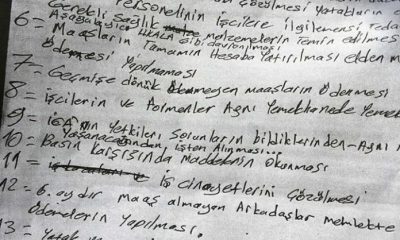 Personelinin İşcilere İlgilemesi Teda
Gerekli Sağlık malzemelerin Temin edilmes
6= Maaşların Tamamın Hesaba Yatırılması Elden m
Ödemesi Yapılmaması
7= Geçmişe dönük Ödenmeyen maaşların Ödenmesi
8= İşcilerin ve Formenler Aynı Yemekhanede Yemek
9= İGA nın Yetkileni Sorunların bildiklerinden Aynı
Yaşanacağından İşten Alınması...
10= Basın karşısında Maddenin Okunması
11= İş Cinayetlerini Çözülmesi
12= 6. aydır maaş almayan Arkadaşlar memlekte
Ödemelerin Yapılması.
13= Yatak